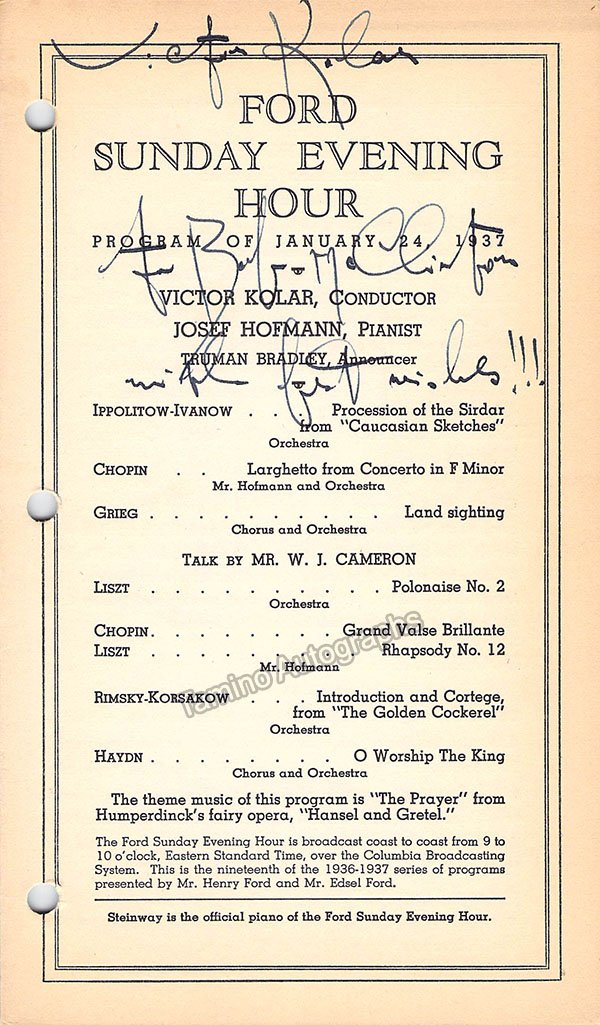 Victor Kolar
FORD
SUNDAY EVENING
HOUR
PROGRAM OF JANUARY 24, 1937
For
VICTOR KOLAR, Conductor
JOSEF HOFMANN, Pianist
TRUMAN BRADLEY, Announcer
with best wishes!!!
Ippolitow-Ivanow . . . Procession of the Sirdar
from "Caucasian Sketches"
Orchestra
Chopin . . Larghetto from Concerto in F Minor
Mr. Hofmann and Orchestra
Grieg . . . . . . . . . . Land sighting
Chorus and Orchestra
Talk by MR. W. J. CAMERON
Liszt . . . . . . . . . Polonaise No. 2
Orchestra
Chopin. . . . . . . . Grand Valse Brillante
Liszt . . . . . . . . . Rhapsody No. 12
Mr. Hofmann
Tamino Autographs
Rimsky-Korsakow . . . Introduction and Cortege,
from "The Golden Cockerel"
Orchestra
Haydn . . . . . . . . O Worship The King
Chorus and Orchestra
The theme music of this program is "The Prayer" from
Humperdinck's fairy opera, "Hansel and Gretel."
The Ford Sunday Evening Hour is broadcast coast to coast from 9 to
10 o'clock, Eastern Standard Time, over the Columbia Broadcasting
System. This is the nineteenth of the 1936-1937 series of programs
presented by Mr. Henry Ford and Mr. Edsel Ford.
Steinway is the official piano of the Ford Sunday Evening Hour.